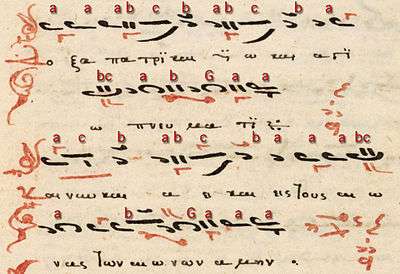 a a ab c b ab c b a
ο ξα πα τρϊ και ϋ ω και α γϊ
bc a b b G a a
ω πνευ μα τϊ
a c b a b c b a a a bc
και νυν και α ει και εις τους αι ω
a c b G a a a
νας των αι ω νων α μην .